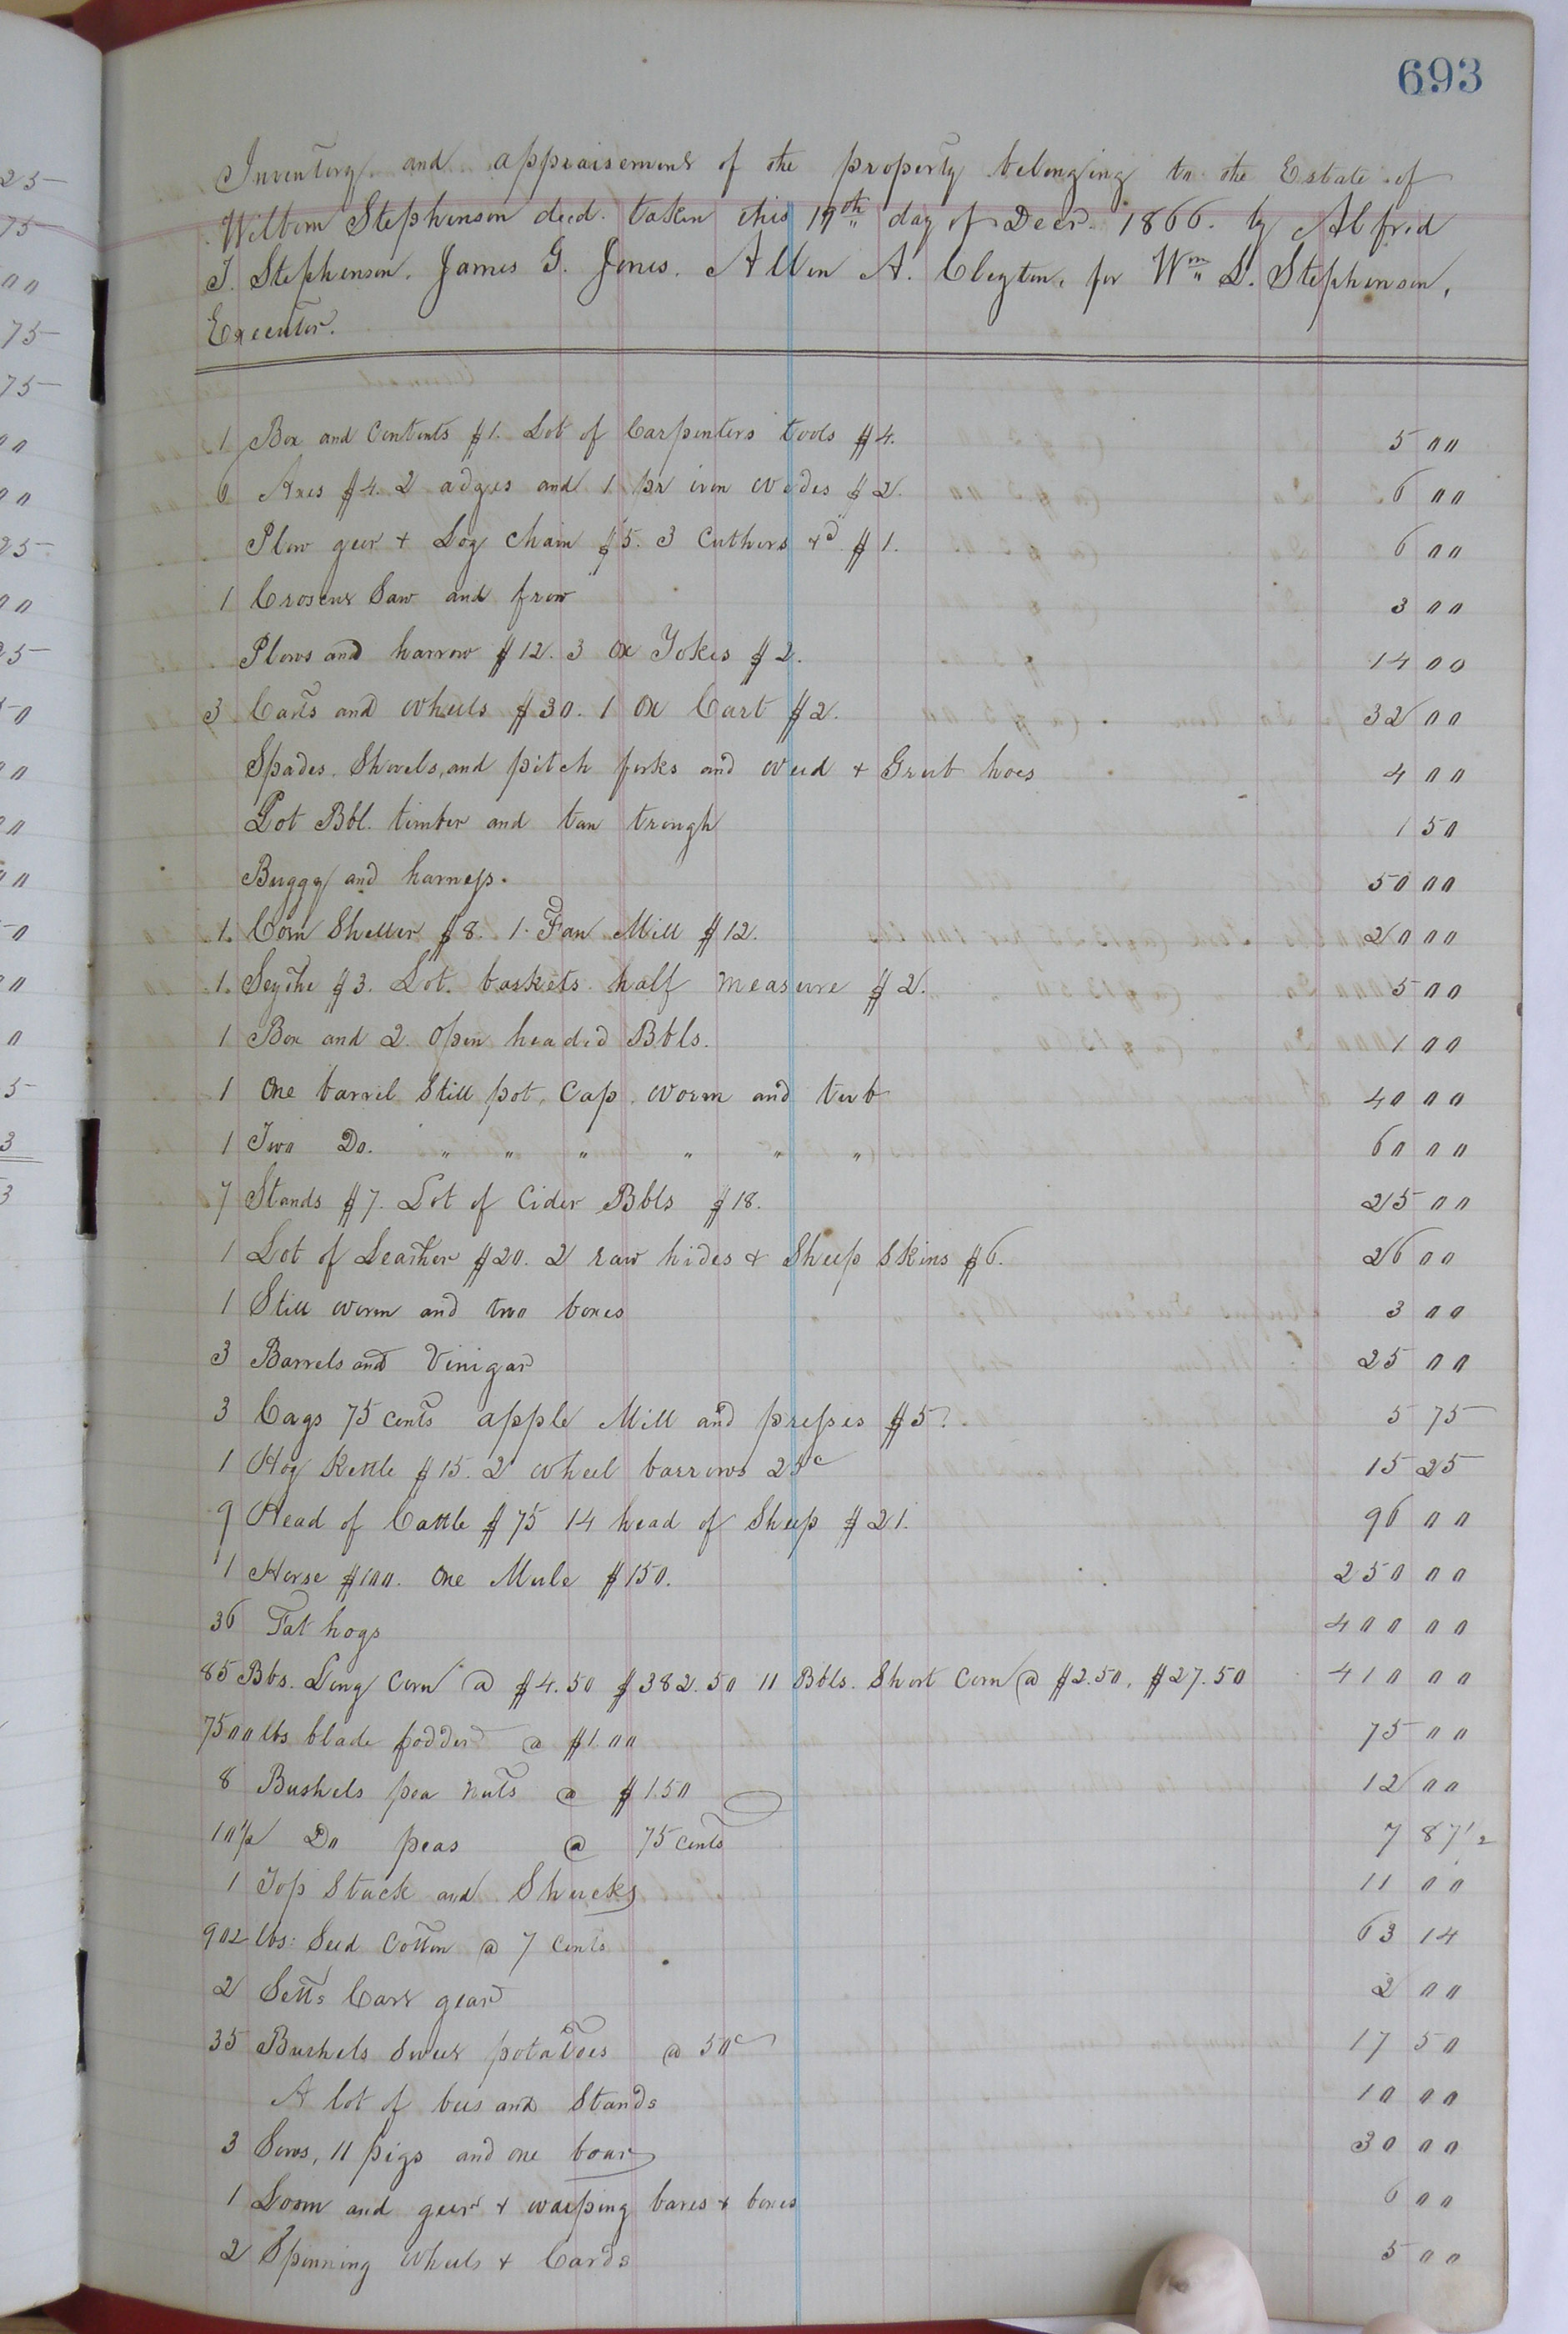 693
Inventory and appraisement of the property belonging to the Estate of
Wilborn Stephenson decd. taken this 19th day of Decr. 1866. by Alfred
J. Stephenson. James G. Jones. Allen A. Cleyton, for Wm L. Stephenson,
Executor.
1 Box and Contents $1. Lot of Carpenters tools $4. 5 00
6 Axes $4. 2 adges and 1 pr iron wedes $2. 6 00
Plow geer + Log Chain $5. 3 Cutters +c $1. 6 00
1 Croscut Saw and frow 3 00
Plows and harrow $12. 3 Ox Yokes $2. 14 00
3 Carts and wheels $30. 1 Ox Cart $2. 32 00
Spades. Shovels, and pitch forks and weed + Grub hoes 4 00
Lot Bbl. timber and tan trough 1 50
Buggy and harness. 50 00
1. Corn Sheller $8. 1. Fan Mill $12. 20 00
1. Scythe $3. Lot. baskets. half measure $2. 5 00
1 Box and 2. Open headed Bbls. 1 00
1 One barrel Still pot, Cap, worm and tub 40 00
1 Two Do. " " " " " " 60 00
7 Stands $7. Lot of Cider Bbls $18. 25 00
1 Lot of Leather $20. 2 raw hides & Sheep Skins $6. 26 00
1 Still worm and two boxes 3 00
3 Barrels and Vinigar 25 00
3 Cags 75 cents apple Mill and presses $5. 5 75
1 Hog Kettle $15. 2 wheel barrows 25c 15 25
9 Head of Cattle $75 14 head of Sheep $21. 96 00
1 Horse $100. One Mule $150. 250 00
36 Fat hogs 400 00
85 Bbs. Long Corn @ $4.50 $382.50 11 Bbls. Short Corn @ $2.50. $27.50 410 00
7500 lbs blade fodder @ $1.00 75 00
8 Bushels pea nuts @ $1.50 12 00
10 1/2 Do peas @ 75 cents 7 87 1/2
1 Top Stack and Shucks 11 00
902 lbs: Seed Cotton @ 7 cents 63 14
2 Setts Cart gear 2 00
35 Bushels Sweet potatoes @ 50c 17 50
A lot of bees and Stands 10 00
3 Sows, 11 pigs and one boar 30 00
1 Loom and geer + warping bares + boxes 6 00
2 Spinning wheels + Cards 5 00